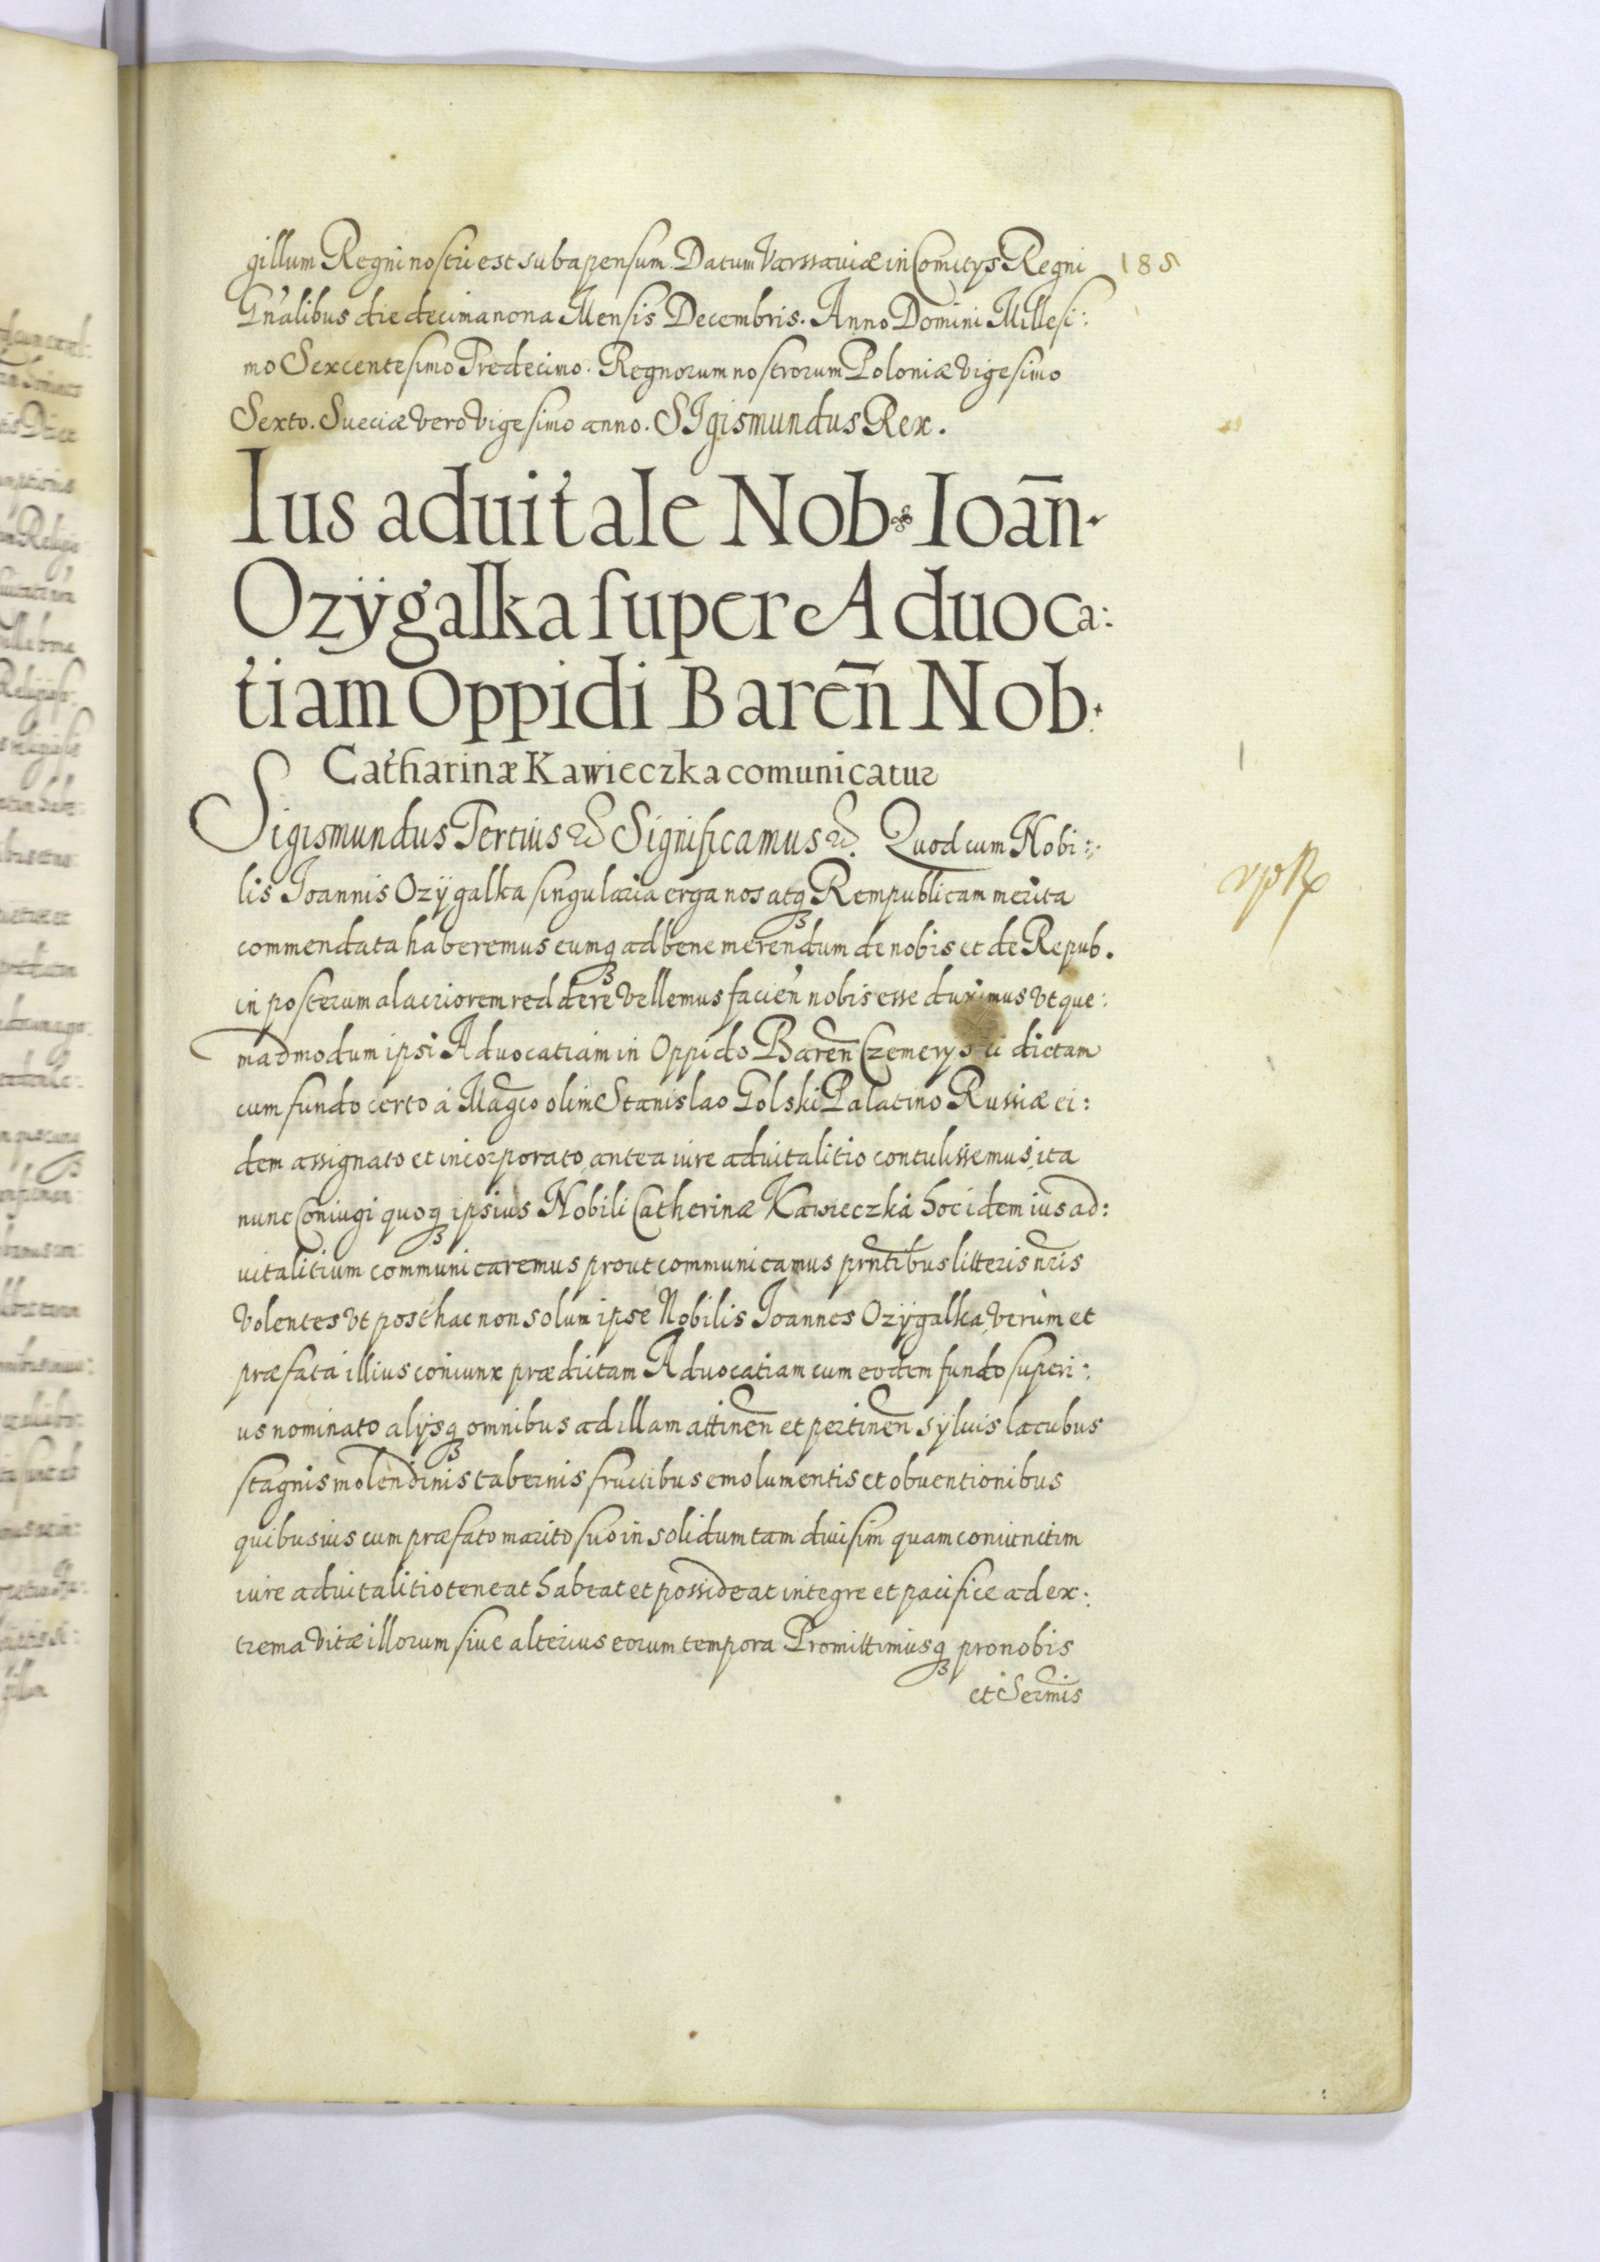 gillum Regni nostri est subapensum. Datum Varssaviæ in Comitys Regni 185
Gn̄alibus die decima nona Mensis Decembris. Anno Domini Millesi:
mo Sexcentesimo Tredecimo. Regnorum nostrorum Poloniæ vigesimo
Sexto. Sueciæ vero vigesimo anno. SIgismundus Rex.
Ius aduitale Nob. Ioan̄.
Ozÿgalka super Aduoca:
tiam Oppidi Baren̄ Nob.
Catharinæ Kawieczka comunicatur
Sigismundus Tertius &c Significamus &c. Quod cum Nobi:
lis Ioannis Ozÿgalka singularia erga nos atq₃ Rempublicam merita
commendata haberemus eumq₃ ad bene merendum de nobis et de Repub.
in posterum alacriorem reddere vellemus facien̄ nobis esse duximus vt que:
madmodum ipsi Aduocatiam in Oppido Baren̄ dictam
cum fundo certo á Magco olim Stanislao Golski Palatino Russiæ ei:
dem assignato et incorporato, antea iure aduitalitio contulissemus, ita
nunc Coniugi quoq₃ ipsius Nobili Catherinæ Kawieczka hoc idem ius ad:
uitalitium communicaremus prout communicamus prn̄tibus litteris nr̄is
volentes vt posthac non solum ipse Nobilis Ioannes Ozÿgalka, verùm et
præfata illius coniunx prædictam Aduocatiam cum eodem fundo superi:
us nominato alijsq₃ omnibus ad illam attinen̄ et pertinen̄ sylvis lacubus
stagnis molendinis tabernis fructibus emolumentis et obventionibus
quibusvis cum præfato marito suo in solidum tam divisim quam coniunctim
iure aduitalitio teneat habeat et possideat integre et pacifice ad ex:
trema vitæ illorum sive alterius eorum tempora Promittimusq₃ pro nobis
et Serm̄is